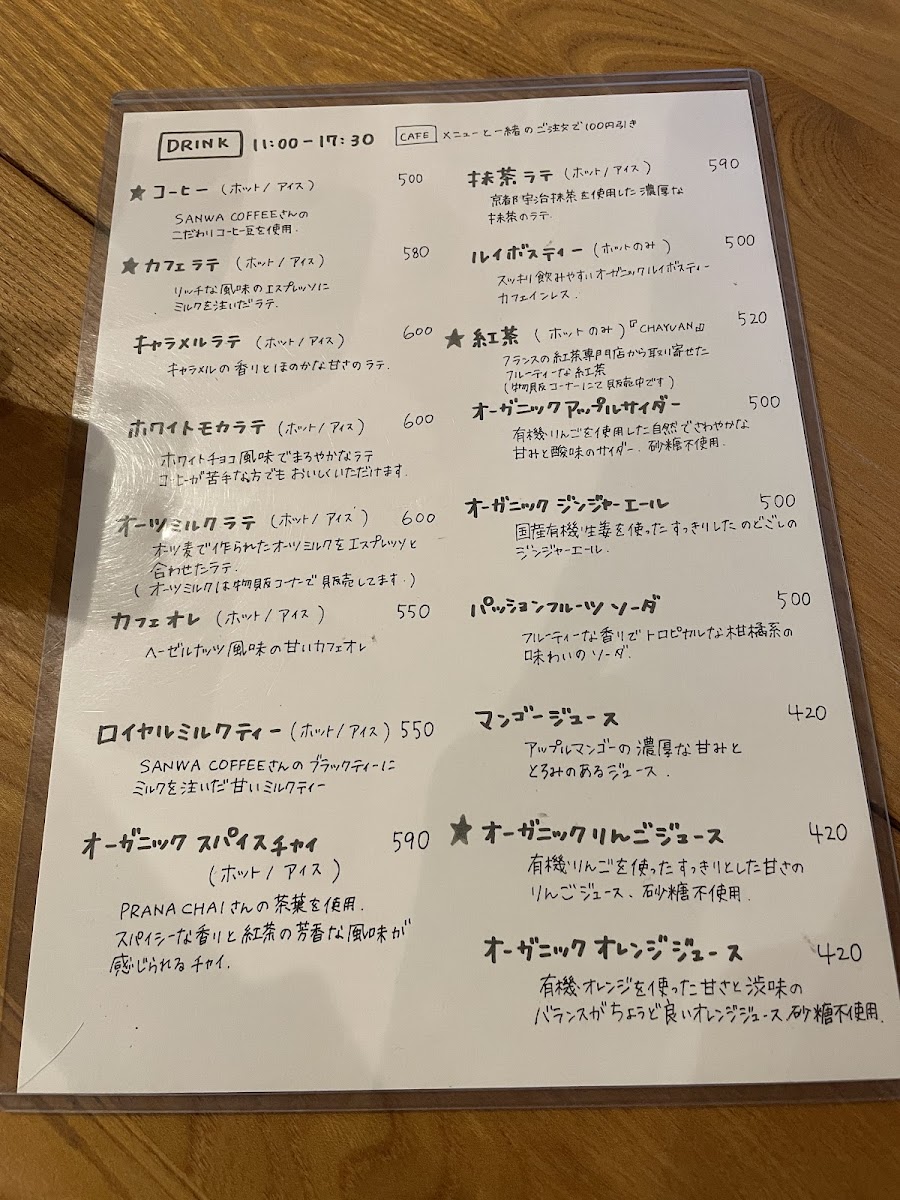 DRINK 11:00-17:30 CAFE メニューと一緒のご注文で100円引き
★コーヒー (ホット/アイス) 500
SANWA COFFEEさんの
こだわりコーヒー豆を使用.
★カフェラテ (ホット/アイス) 580
リッチな風味のエスプレッソに
ミルクを注いだラテ.
キャラメルラテ (ホット/アイス) 600
キャラメルの香りとほのかな甘さのラテ.
ホワイトモカラテ (ホット/アイス) 600
ホワイトチョコ風味でまろやかなラテ
コーヒーが苦手な方でもおいしくいただけます.
オーツミルクラテ (ホット/アイス) 600
オーツ麦で作られたオーツミルクをエスプレッソと
合わせたラテ.
(オーツミルクは物販コーナーで販売してます.)
カフェオレ (ホット/アイス) 550
ヘーゼルナッツ風味の甘いカフェオレ
ロイヤルミルクティー (ホット/アイス) 550
SANWA COFFEEさんのブラックティーに
ミルクを注いだ甘いミルクティー
オーガニック スパイスチャイ 590
(ホット/アイス)
PRANA CHAIさんの茶葉を使用.
スパイシーな香りと紅茶の芳香な風味が
感じられるチャイ.
抹茶ラテ (ホット/アイス) 590
京都宇治抹茶を使用した濃厚な
抹茶のラテ.
ルイボスティー (ホットのみ) 500
スッキリ飲みやすいオーガニックルイボスティー
カフェインレス.
★紅茶 (ホットのみ)『CHAYUAN』 520
フランスの紅茶専門店から取り寄せた
フルーティーな紅茶
(物販コーナーにて販売中です)
オーガニックアップルサイダー 500
有機りんごを使用した自然でさわやかな
甘みと酸味のサイダー. 砂糖不使用.
オーガニック ジンジャーエール 500
国産有機生姜を使ったすっきりしたのどごしの
ジンジャーエール.
パッションフルーツ ソーダ 500
フルーティーな香りでトロピカルな柑橘系の
味わいのソーダ.
マンゴージュース 420
アップルマンゴーの濃厚な甘みと
とろみのあるジュース.
★オーガニックりんごジュース 420
有機りんごを使ったすっきりとした甘さの
りんごジュース. 砂糖不使用.
オーガニック オレンジジュース 420
有機オレンジを使った甘さと渋味の
バランスがちょうど良いオレンジジュース. 砂糖不使用.